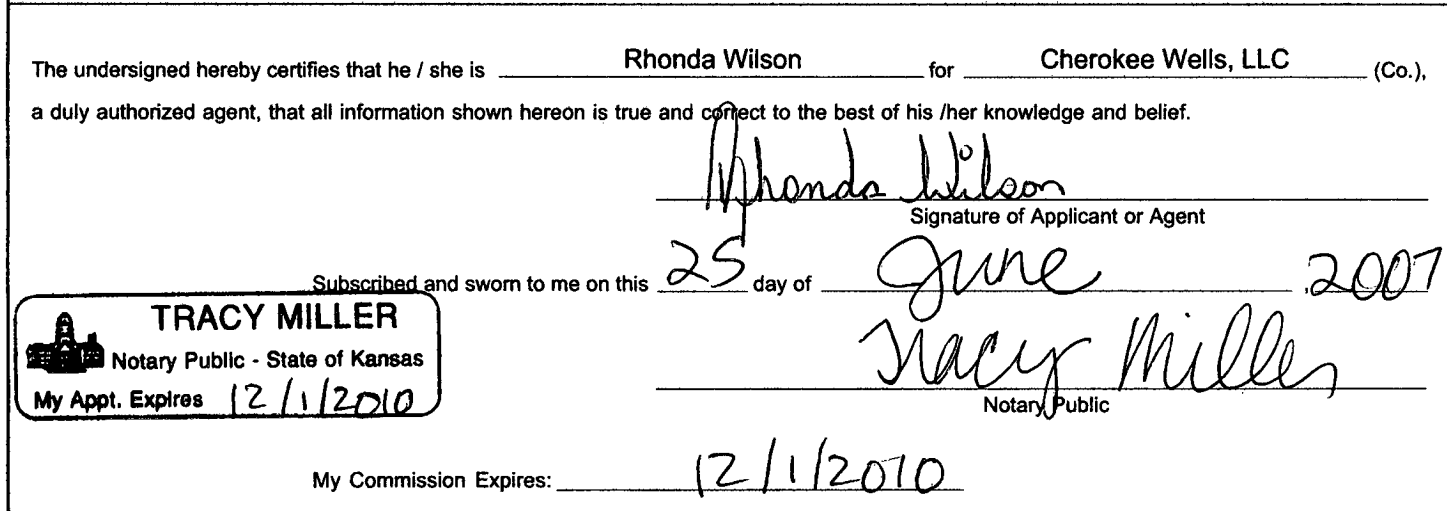 The undersigned hereby certifies that he / she is Rhonda Wilson for Cherokee Wells, LLC (Co.),
a duly authorized agent, that all information shown hereon is true and correct to the best of his /her knowledge and belief.
Rhonda Wilson
Signature of Applicant or Agent
Subscribed and sworn to me on this 25 day of June , 2007
TRACY MILLER
Notary Public - State of Kansas
My Appt. Expires 12/1/2010
Tracy Miller
Notary Public
My Commission Expires: 12/1/2010